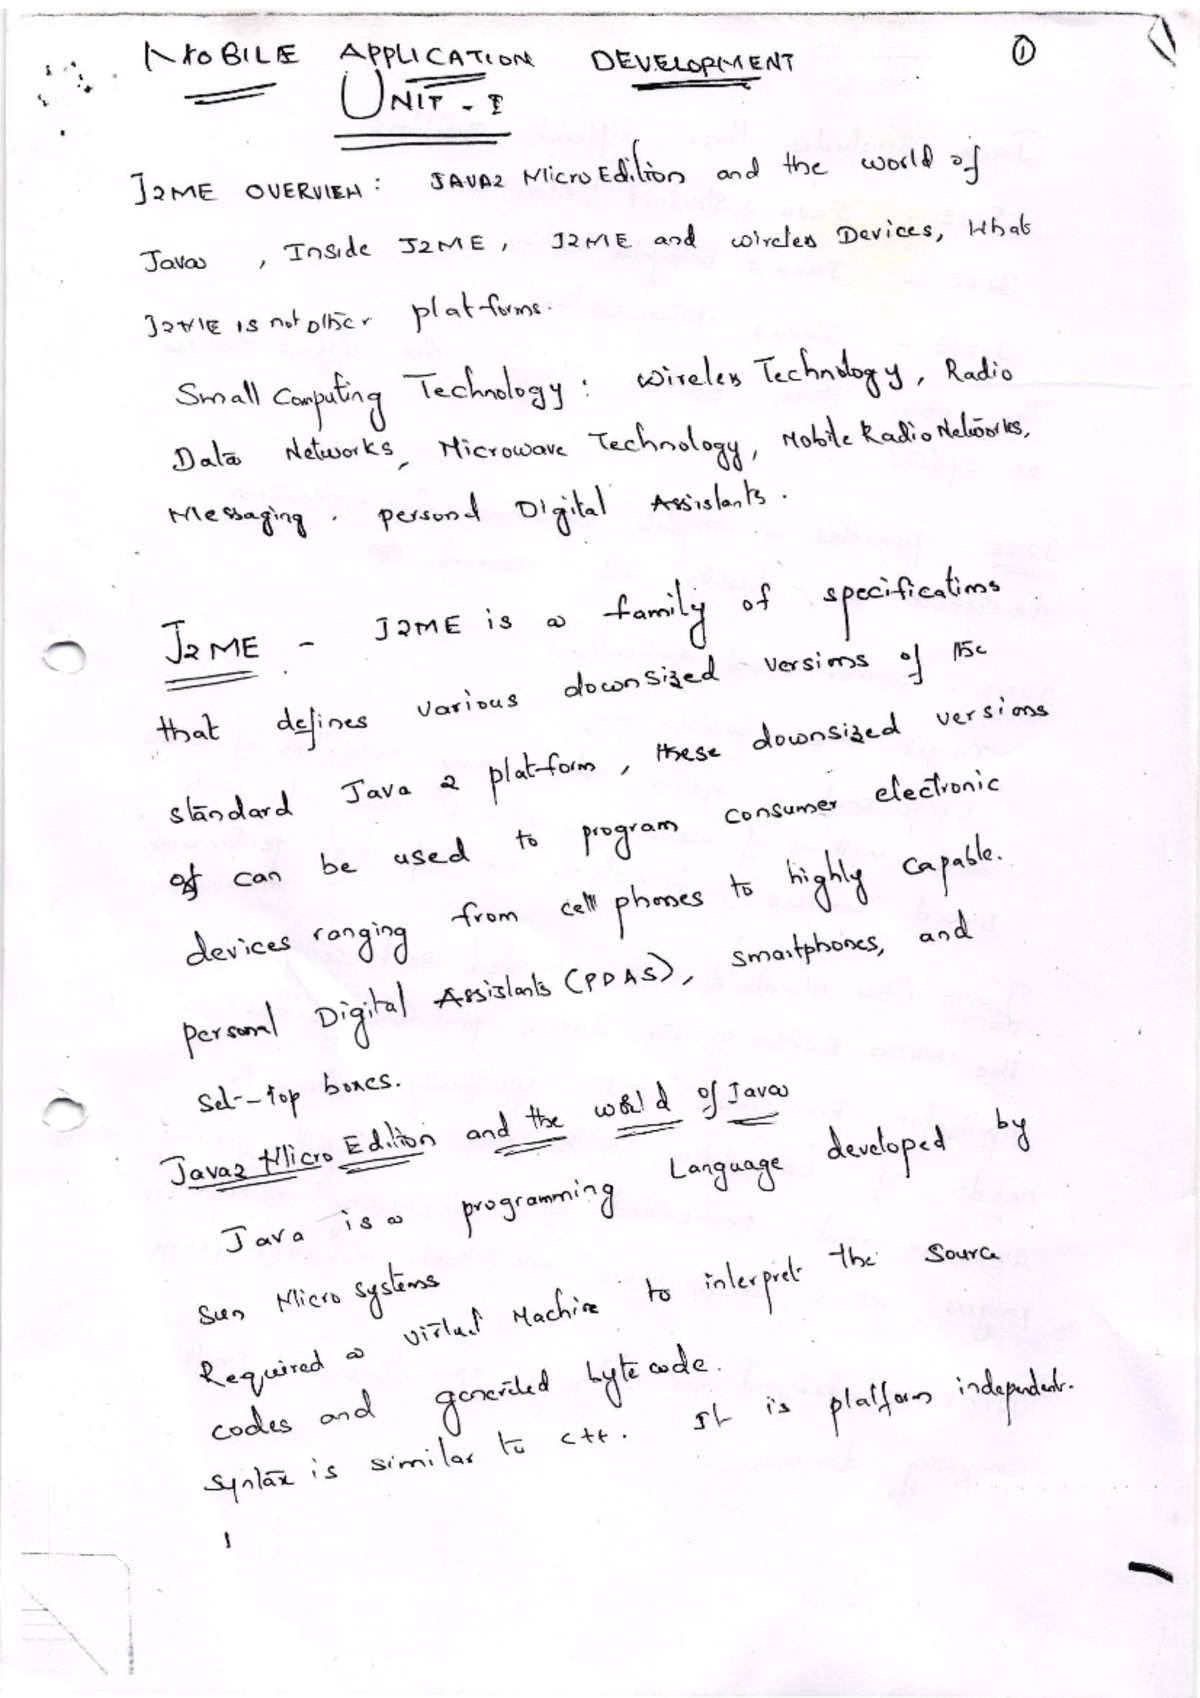 MOBILE APPLICATION DEVELOPMENT ①
UNIT - I
J2ME OVERVIEW: JAVA2 Micro Edition and the world of
Java , Inside J2ME, J2ME and wireless Devices, What
J2ME is not other platforms.
Small Computing Technology: wireless Technology, Radio
Data Networks, Microwave Technology, Mobile Radio Networks,
Messaging, personal Digital Assistants.
J2ME - J2ME is a family of specifications
that defines various downsized versions of the
standard Java 2 platform, these downsized versions
of can be used to program consumer electronic
devices ranging from cell phones to highly capable.
personal Digital Assistants (PDAS), smartphones, and
Set-top boxes.
Java2 Micro Edition and the world of Java
Java is a programming Language developed by
Sun Micro systems
Required a virtual Machine to interpret the source
codes and generated byte code.
Syntax is similar to c++. It is platform independent.
1